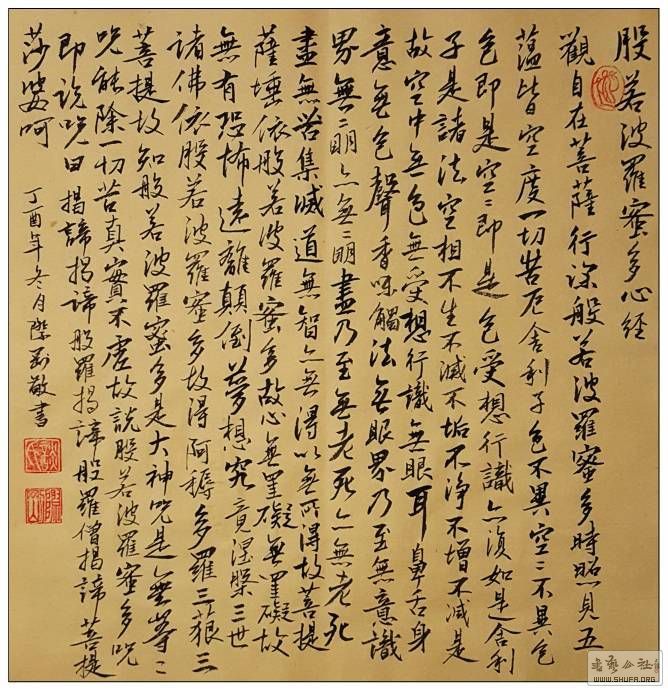 般若波羅蜜多心經
觀自在菩薩行深般若波羅蜜多時照見五
蘊皆空度一切苦厄舍利子色不異空〻不異色
色即是空〻即是色受想行識亦復如是舍利
子是諸法空相不生不滅不垢不淨不增不減是
故空中無色無受想行識無眼耳鼻舌身
意無色聲香味觸法無眼界乃至無意識
界無〻明亦無〻明盡乃至無老死亦無老死
盡無苦集滅道無智亦無得以無所得故菩提
薩埵依般若波羅蜜多故心無罣礙無罣礙故
無有恐怖遠離顛倒夢想究竟涅槃三世
諸佛依般若波羅蜜多故得阿耨多羅三藐三
菩提故知般若波羅蜜多是大神咒是無等〻
咒能除一切苦真實不虛故說般若波羅蜜多咒
即說咒曰揭諦揭諦般羅揭諦般羅僧揭諦菩提
莎婆呵
丁酉年冬月 敬書
書藝公社
WWW.SHUFA.ORG